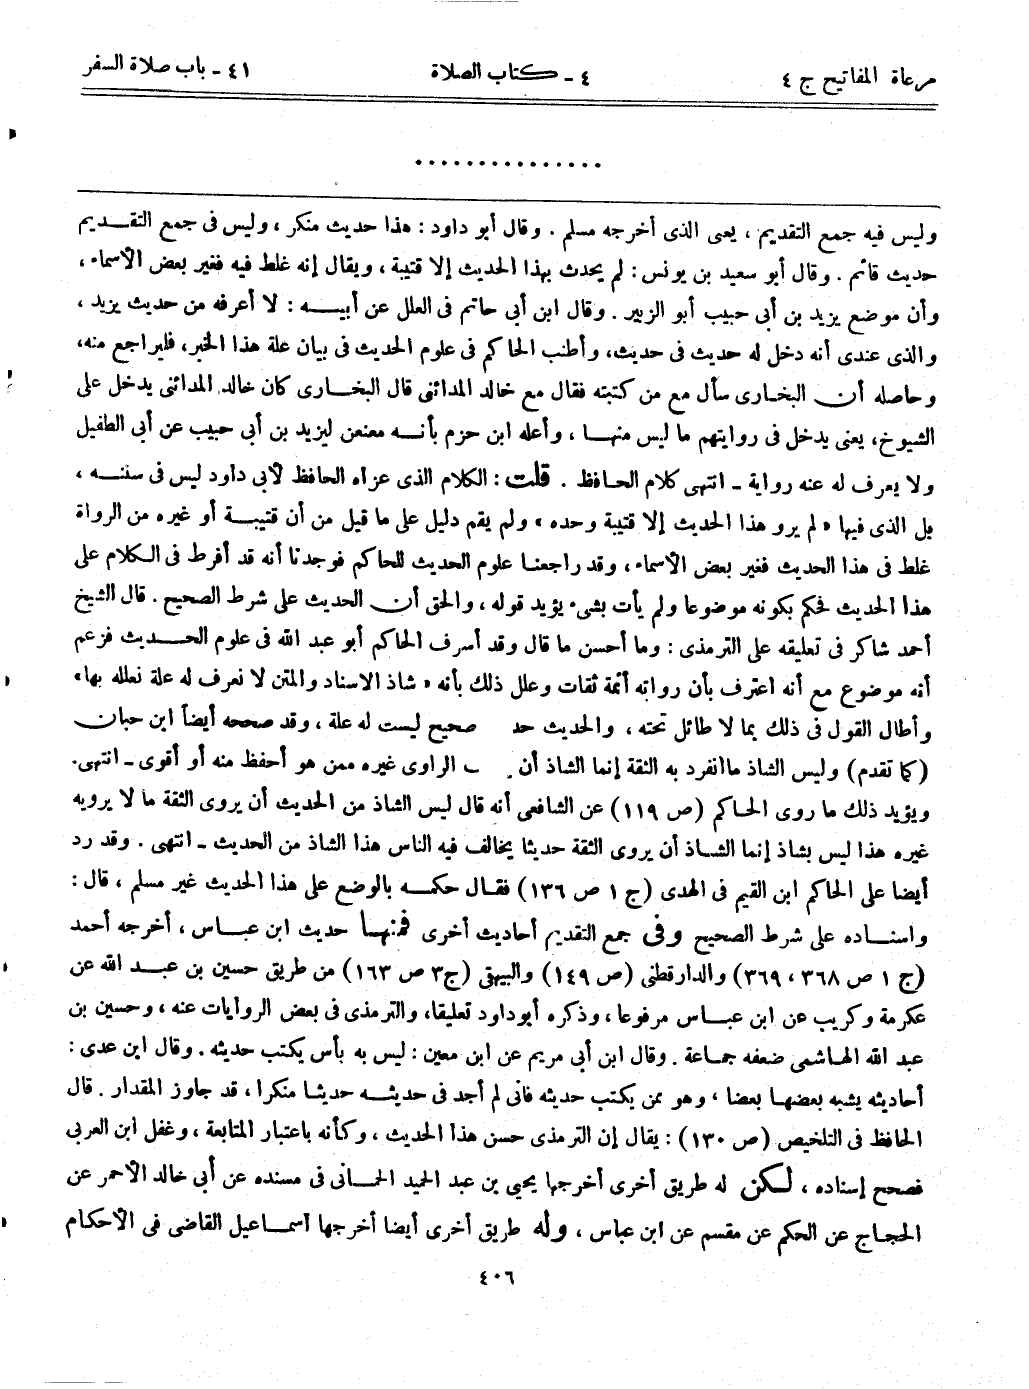 مرعاة المفاتيح ج ٤ ٤ - كتاب الصلاة ٤١ - باب صلاة السفر
...............
وليس فيه جمع التقديم ، يعنى الذى أخرجه مسلم . وقال أبو داود : هذا حديث منكر ، وليس فى جمع التقديم
حديث قائم . وقال أبو سعيد بن يونس : لم يحدث بهذا الحديث إلا قتيبة ، ويقال إنه غلط فيه فغير بعض الأسماء ،
وأن موضع يزيد بن أبى حبيب أبو الزبير . وقال ابن أبى حاتم فى العلل عن أبيه : لا أعرفه من حديث يزيد ،
والذى عندى أنه دخل له حديث فى حديث، وأطنب الحاكم فى علوم الحديث فى بيان علة هذا الخبر، فليراجع منه،
وحاصله أن البخارى سأل مع من كتبته فقال مع خالد المدائنى قال البخارى كان خالد المدائنى يدخل على
الشيوخ، يعنى يدخل فى روايتهم ما ليس منها ، وأعله ابن حزم بأنه معنعن ليزيد بن أبى حبيب عن أبى الطفيل
ولا يعرف له عنه رواية - انتهى كلام الحافظ . قلت : الكلام الذى عزاه الحافظ لأبى داود ليس فى سننه ،
بل الذى فيها « لم يرو هذا الحديث إلا قتيبة وحده » ولم يقم دليل على ما قيل من أن قتيبة أو غيره من الرواة
غلط فى هذا الحديث فغير بعض الأسماء ، وقد راجعنا علوم الحديث للحاكم فوجدنا أنه قد أفرط فى الكلام على
هذا الحديث فحكم بكونه موضوعا ولم يأت بشىء يؤيد قوله ، والحق أن الحديث على شرط الصحيح . قال الشيخ
أحمد شاكر فى تعليقه على الترمذى : وما أحسن ما قال وقد أسرف الحاكم أبو عبد الله فى علوم الحديث فزعم
أنه موضوع مع أنه اعترف بأن رواته أئمة ثقات وعلل ذلك بأنه « شاذ الاسناد والمتن لا نعرف له علة نعلله بها»
وأطال القول فى ذلك بما لا طائل تحته ، والحديث حد صحيح ليست له علة ، وقد صححه أيضاً ابن حبان
(كما تقدم) وليس الشاذ ما انفرد به الثقة إنما الشاذ أن الراوى غيره ممن هو أحفظ منه أو أقوى - انتهى.
ويؤيد ذلك ما روى الحاكم (ص ١١٩) عن الشافعى أنه قال ليس الشاذ من الحديث أن يروى الثقة ما لا يرويه
غيره هذا ليس بشاذ إنما الشاذ أن يروى الثقة حديثا يخالف فيه الناس هذا الشاذ من الحديث - انتهى . وقد رد
أيضا على الحاكم ابن القيم فى الهدى (ج ١ ص ١٣٦) فقال حكمه بالوضع على هذا الحديث غير مسلم ، قال :
واسناده على شرط الصحيح وفى جمع التقديم أحاديث أخرى فمنها حديث ابن عباس ، أخرجه أحمد
(ج ١ ص ٣٦٨ ، ٣٦٩) والدارقطنى (ص ١٤٩) والبيهقى (ج٣ ص ١٦٣) من طريق حسين بن عبد الله عن
عكرمة وكريب عن ابن عباس مرفوعا ، وذكره أبوداود تعليقا، والترمذى فى بعض الروايات عنه ، وحسين بن
عبد الله الهاشمى ضعفه جماعة . وقال ابن أبى مريم عن ابن معين : ليس به بأس يكتب حديثه . وقال ابن عدى :
أحاديثه يشبه بعضها بعضا ، وهو ممن يكتب حديثه فانى لم أجد فى حديثه حديثا منكرا ، قد جاوز المقدار . قال
الحافظ فى التلخيص (ص ١٣٠) : يقال إن الترمذى حسن هذا الحديث ، وكأنه باعتبار المتابعة ، وغفل ابن العربى
فصحح إسناده ، لكن له طريق أخرى أخرجها يحيى بن عبد الحميد الحمانى فى مسنده عن أبى خالد الأحمر عن
الحجاج عن الحكم عن مقسم عن ابن عباس ، وله طريق أخرى أيضا أخرجها اسماعيل القاضى فى الأحكام
٤٠٦